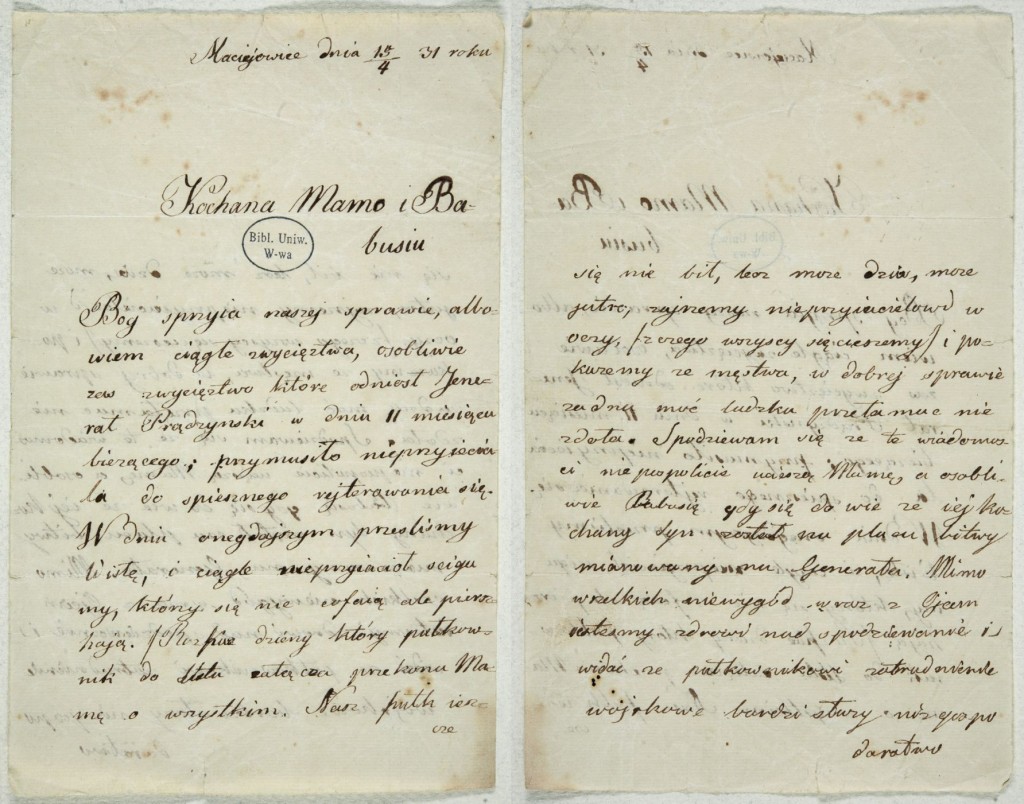 Maciejowice dnia 15/4 31 roku
Kochana Mamo i Ba-
busiu
Bibl. Uniw.
W-wa
Bóg spryia naszej sprawie, albo-
wiem ciągłe zwycięztwa, osobliwie
zas zwycięztwo które odniosł Jene-
rał Prądzynski w dniu 11 miesięca
bieżącego, przymusiło nieprzyjecia
la do spiesznego rejterowania się.
W dniu onegdajszym przesliśmy
Wisłę, i ciągle nieprzyiaciół sciga
my, którzy się nie cofaią ale pierz-
hają. dzieny który pułkow-
nik do listu załącza przekona Ma-
mę o wszystkim. Nasz pułk iesz-
cze
się nie bił, lecz moze dzis, moze
jutro, zajrzemy nieprzyiacielowi w
oczy, /z czego wszyscy się cieszemy/ i po-
każemy ze męstwa, w dobrej sprawie
zadna moc ludzka przełamac nie
zdoła. Spodziewam się ze te wiadomos-
ci niepospolicie ucieszą Mamę, a osobli-
wie Babusią gdy się dowie ze iéj ko-
chany syn został na placu bitwy
mianowany na Generała. Mimo
wszelkich niewygód wraz z Ojcem
iestesmy zdrowi nad spodziewanie i
widać ze pułkownikowi zatrudnienie
wojskowe bardzi słuzy niz gospo
darstwo